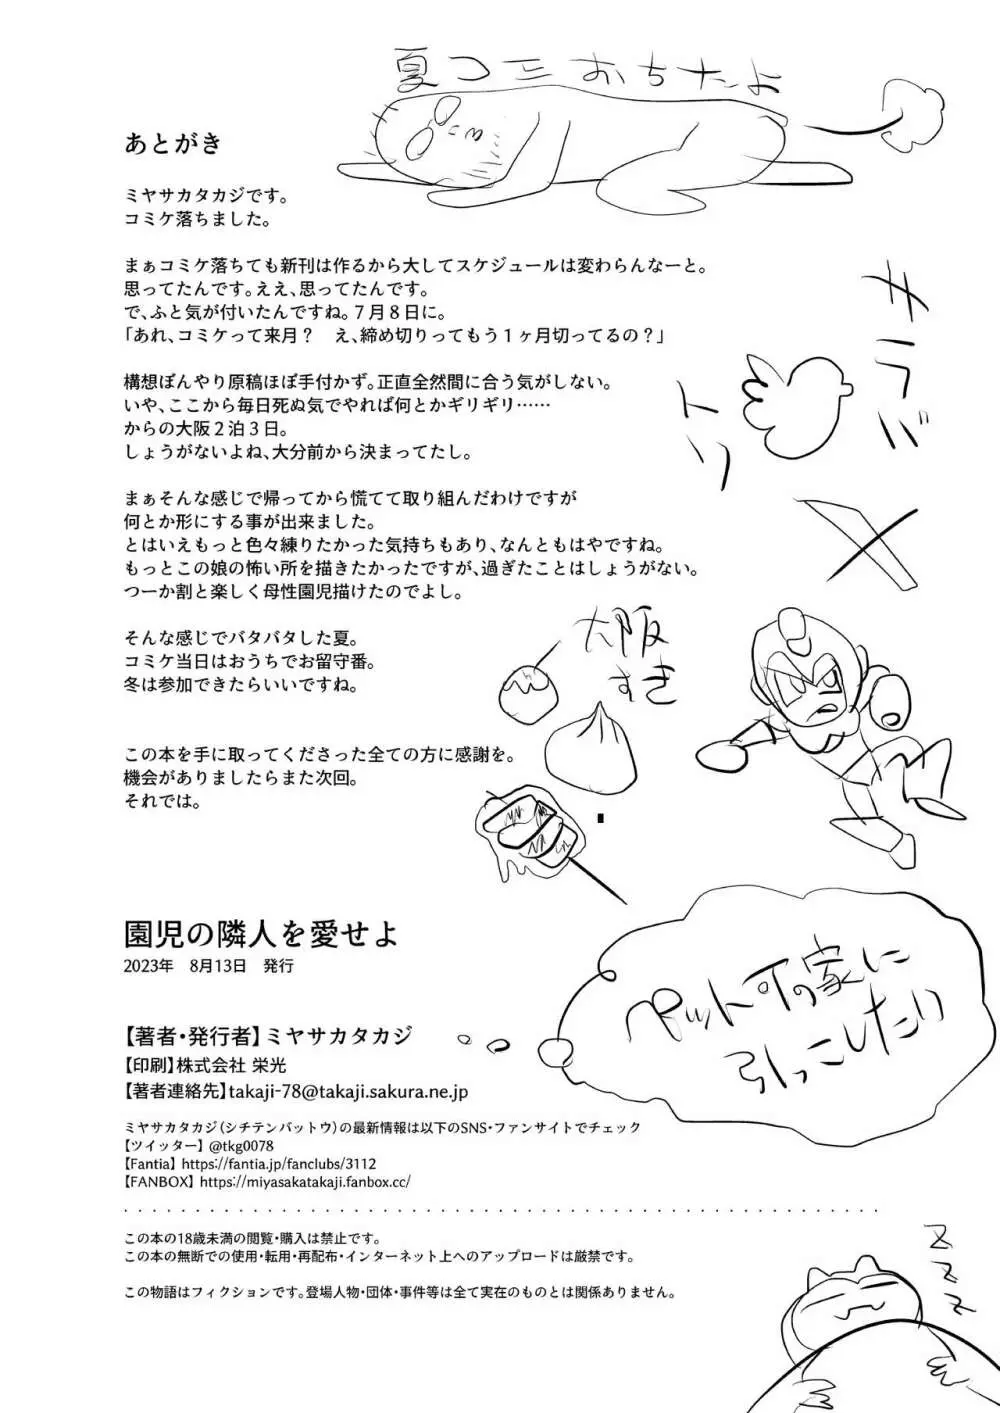 夏コミおちたよ
あとがき
ミヤサカタカジです。
コミケ落ちました。
まぁコミケ落ちても新刊は作るから大してスケジュールは変わらんなーと。
思ってたんです。ええ、思ってたんです。
で、ふと気が付いたんですね。７月８日に。
「あれ、コミケって来月？　え、締め切りってもう１ヶ月切ってるの？」
構想ぼんやり原稿ほぼ手付かず。正直全然間に合う気がしない。
いや、ここから毎日死ぬ気でやれば何とかギリギリ……
からの大阪２泊３日。
しょうがないよね、大分前から決まってたし。
まぁそんな感じで帰ってから慌てて取り組んだわけですが
何とか形にする事が出来ました。
とはいえもっと色々練りたかった気持ちもあり、なんともはやですね。
もっとこの娘の怖い所を描きたかったですが、過ぎたことはしょうがない。
つーか割と楽しく母性園児描けたのでよし。
そんな感じでバタバタした夏。
コミケ当日はおうちでお留守番。
冬は参加できたらいいですね。
この本を手に取ってくださった全ての方に感謝を。
機会がありましたらまた次回。
それでは。
サラバ
トリ
大阪
すき
園児の隣人を愛せよ
2023年　8月13日　発行
【著者・発行者】ミヤサカタカジ
【印刷】株式会社 栄光
【著者連絡先】takaji-78@takaji.sakura.ne.jp
ペット可の家に
引っこしたい
ミヤサカタカジ（シチテンバットウ）の最新情報は以下のSNS・ファンサイトでチェック
【ツイッター】 @tkg0078
【Fantia】 https://fantia.jp/fanclubs/3112
【FANBOX】 https://miyasakatakaji.fanbox.cc/
この本の18歳未満の閲覧・購入は禁止です。
この本の無断での使用・転用・再配布・インターネット上へのアップロードは厳禁です。
この物語はフィクションです。登場人物・団体・事件等は全て実在のものとは関係ありません。
Z
Z
Z
Z